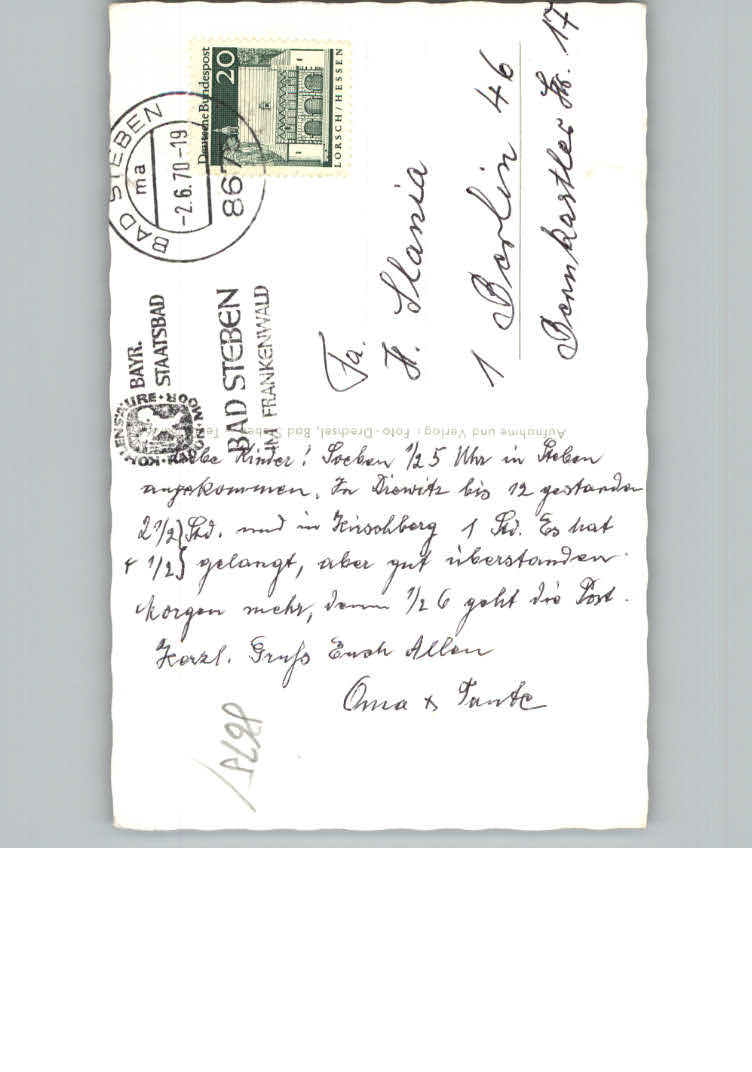 Deutsche Bundespost
20
LORSCH/HESSEN
BAD STEBEN
ma
-2.6.70-19
8675
BAYR.
STAATSBAD
BAD STEBEN
IM FRANKENWALD
KOHLENSÄURE • MOOR
RADON
Fa.
H. Slania
1 Berlin 46
Bernkastler Str. 17
Aufnahme und Verlag: Foto-Drechsel, Bad Steben
Liebe Kinder! Soeben, 1/2 5 Uhr in Steben
angekommen. In Drewitz bis 12 gestanden
2 1/2) Std. und in Hirschberg 1 Std. Es hat
+ 1/2) gelangt, aber gut überstanden.
Morgen mehr, denn 1/2 6 geht die Post.
Herzl. Gruß Euch Allen
Oma & Tante